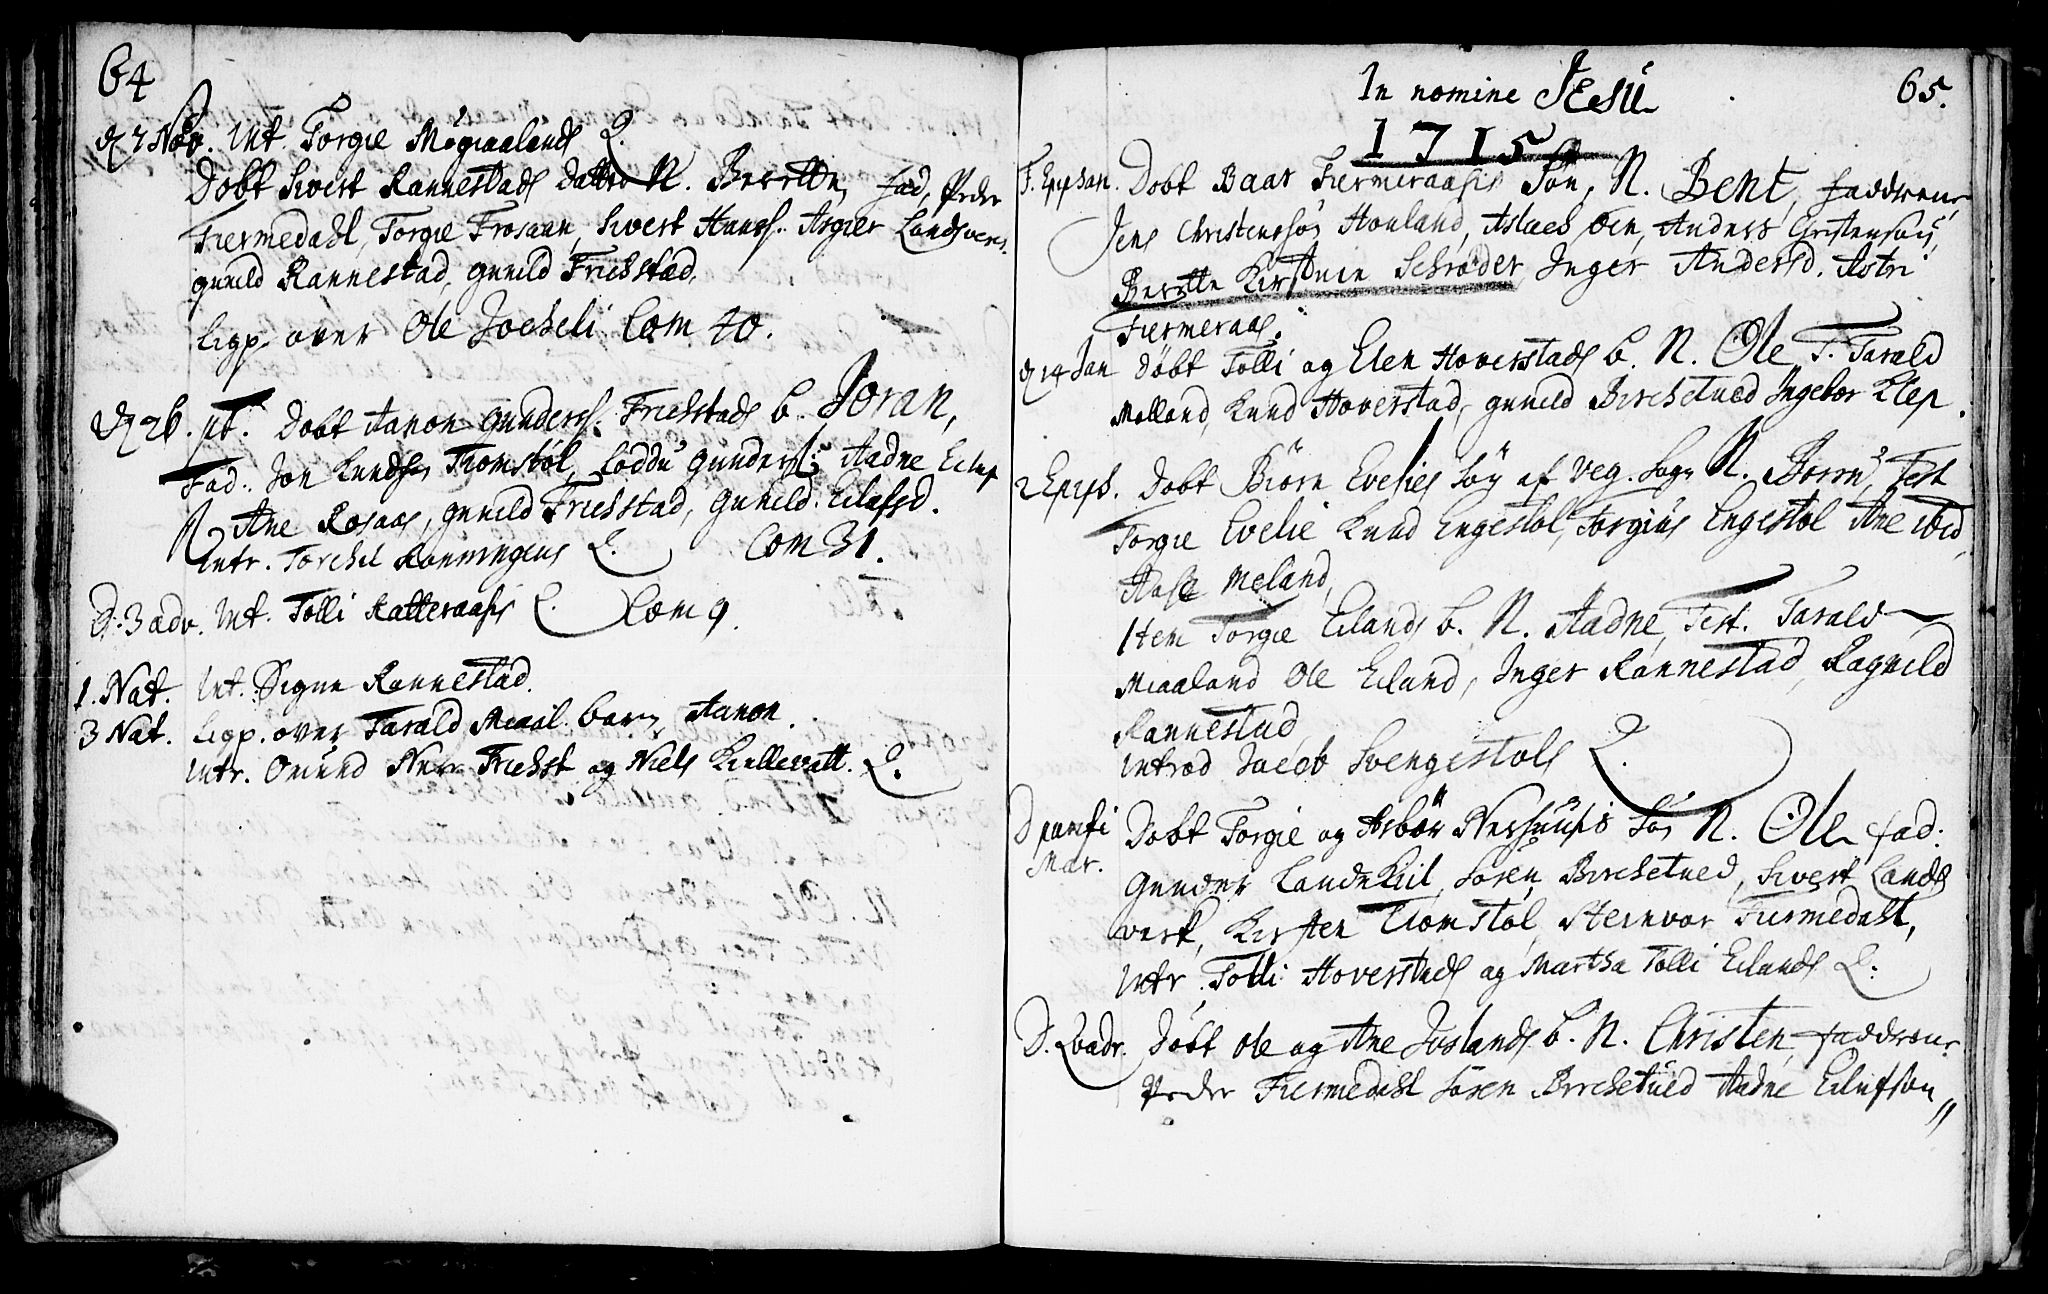 64
D 7 Nov. Int. Torgie Møgiaalands Q.
Døbt Sivert Rannestads datter N. Berette, fad, Peder
Fiermedahl, Torgie Frosaan, Sivert Hanss. Asgier Landsverk.
guneld Rannestad, guneld Frichstad,
Ligp. over Ole Com 40.
D 26. pt. Døbt Aanon gunders. Frichstads b. Joran,
Fad. Jon Knuds Tromstøl, Loddu gunders. Aadne Eilup
Ane Rosaas, guneld Frichstad, guneld Eilafsd.
Intr. Torchel Rønningens Q. Com 31.
D. 3 adv. Int. Tolli Katteraasis Q. Com 9.
1. Nat. Int. Signe Rannestad.
3 Nat. Ligp. over Tarald Miaal. barn Aanon.
Intr. Omund Frichst og Niels Kiellevatt. Q.
In nomine JEsu 65.
1715
F. Epiphan. Døbt Baar Fiermeraasis Søn, N. Bent, faddrene
Jens Christenssøn Honland, Aslach Øen, Anders Christensøn,
Berette Kirstine Schrøder, Inger Andersd. Astri
Fiermeraas.
D 14 Jan Døbt Tolli og Elen Hoverstads b. N. Ole T. Tarald
Molland, Knud Hoverstad, guneld Birchetued Ingebor Klep.
2 Epiph. Døbt Biørn Evelies søn af Veg. Sogn N. Biørn, Test
Torgie Evelie Knud Engestøl, Torgius Engestøl Ane ibid,
Aase Meland,
Item Torgie Eilands b. N. Aadne, Test. Tarald
Miaaland Ole Eiland, Inger Rannestad, Ragnild
Rannestad
Introd Jacob Svengestøls Q.
D
Mar. Døbt Torgie og Asbør Neshuusis søn N. Ole fad:
Gunder Landekiil, Søren Birchetued, Sivert Lands
verk, Kirsten Tromstøl, Steinvor Fiermedahl,
Intr. Tolli Hoverstads og Martha Tolli Eilands Q.
D. Qvadr. Døbt Ole og Ane Juslands b. N. Christen, faddrene
Peder Fiermedahl Søren Birchetued Aadne Eilufson